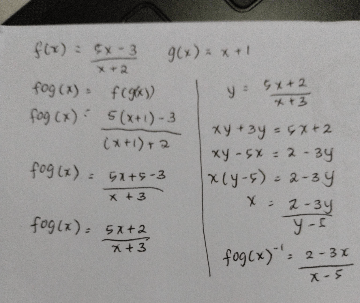 f(x) = 5x - 3 / x + 2
g(x) = x + 1
fog(x) = f(g(x))
fog(x) = 5(x+1) - 3 / (x+1) + 2
fog(x) = 5x + 5 - 3 / x + 3
fog(x) = 5x + 2 / x + 3
y = 5x + 2 / x + 3
xy + 3y = 5x + 2
xy - 5x = 2 - 3y
x(y - 5) = 2 - 3y
x = 2 - 3y / y - 5
fog(x)⁻¹ = 2 - 3x / x - 5